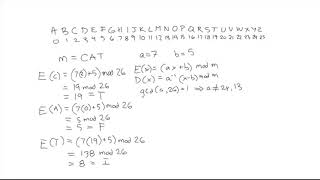 A B C D E F G H I J K L M N O P Q R S T U V W X Y Z
0 1 2 3 4 5 6 7 8 9 10 11 12 13 14 15 16 17 18 19 20 21 22 23 24 25
m = CAT a=7 b=5
E(C) = (7(2)+5) mod 26
= 19 mod 26
= 19 = T
E(A) = (7(0)+5) mod 26
= 5 mod 26
= 5 = F
E(T) = (7(19)+5) mod 26
= 138 mod 26
= 8 = I
E(x) = (ax+b) mod m
D(x) = a⁻¹(x-b) mod m
gcd(a,26)=1 ⇒ a≠2k,13